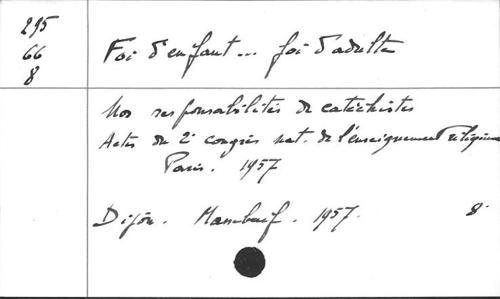 295
66
8
Foi d'enfant... foi d'adulte
Nos responsabilités de catéchistes
Actes du 2e congrès nat. de l'enseignement religieux
Paris. 1957
Dijon. 1957. 8°